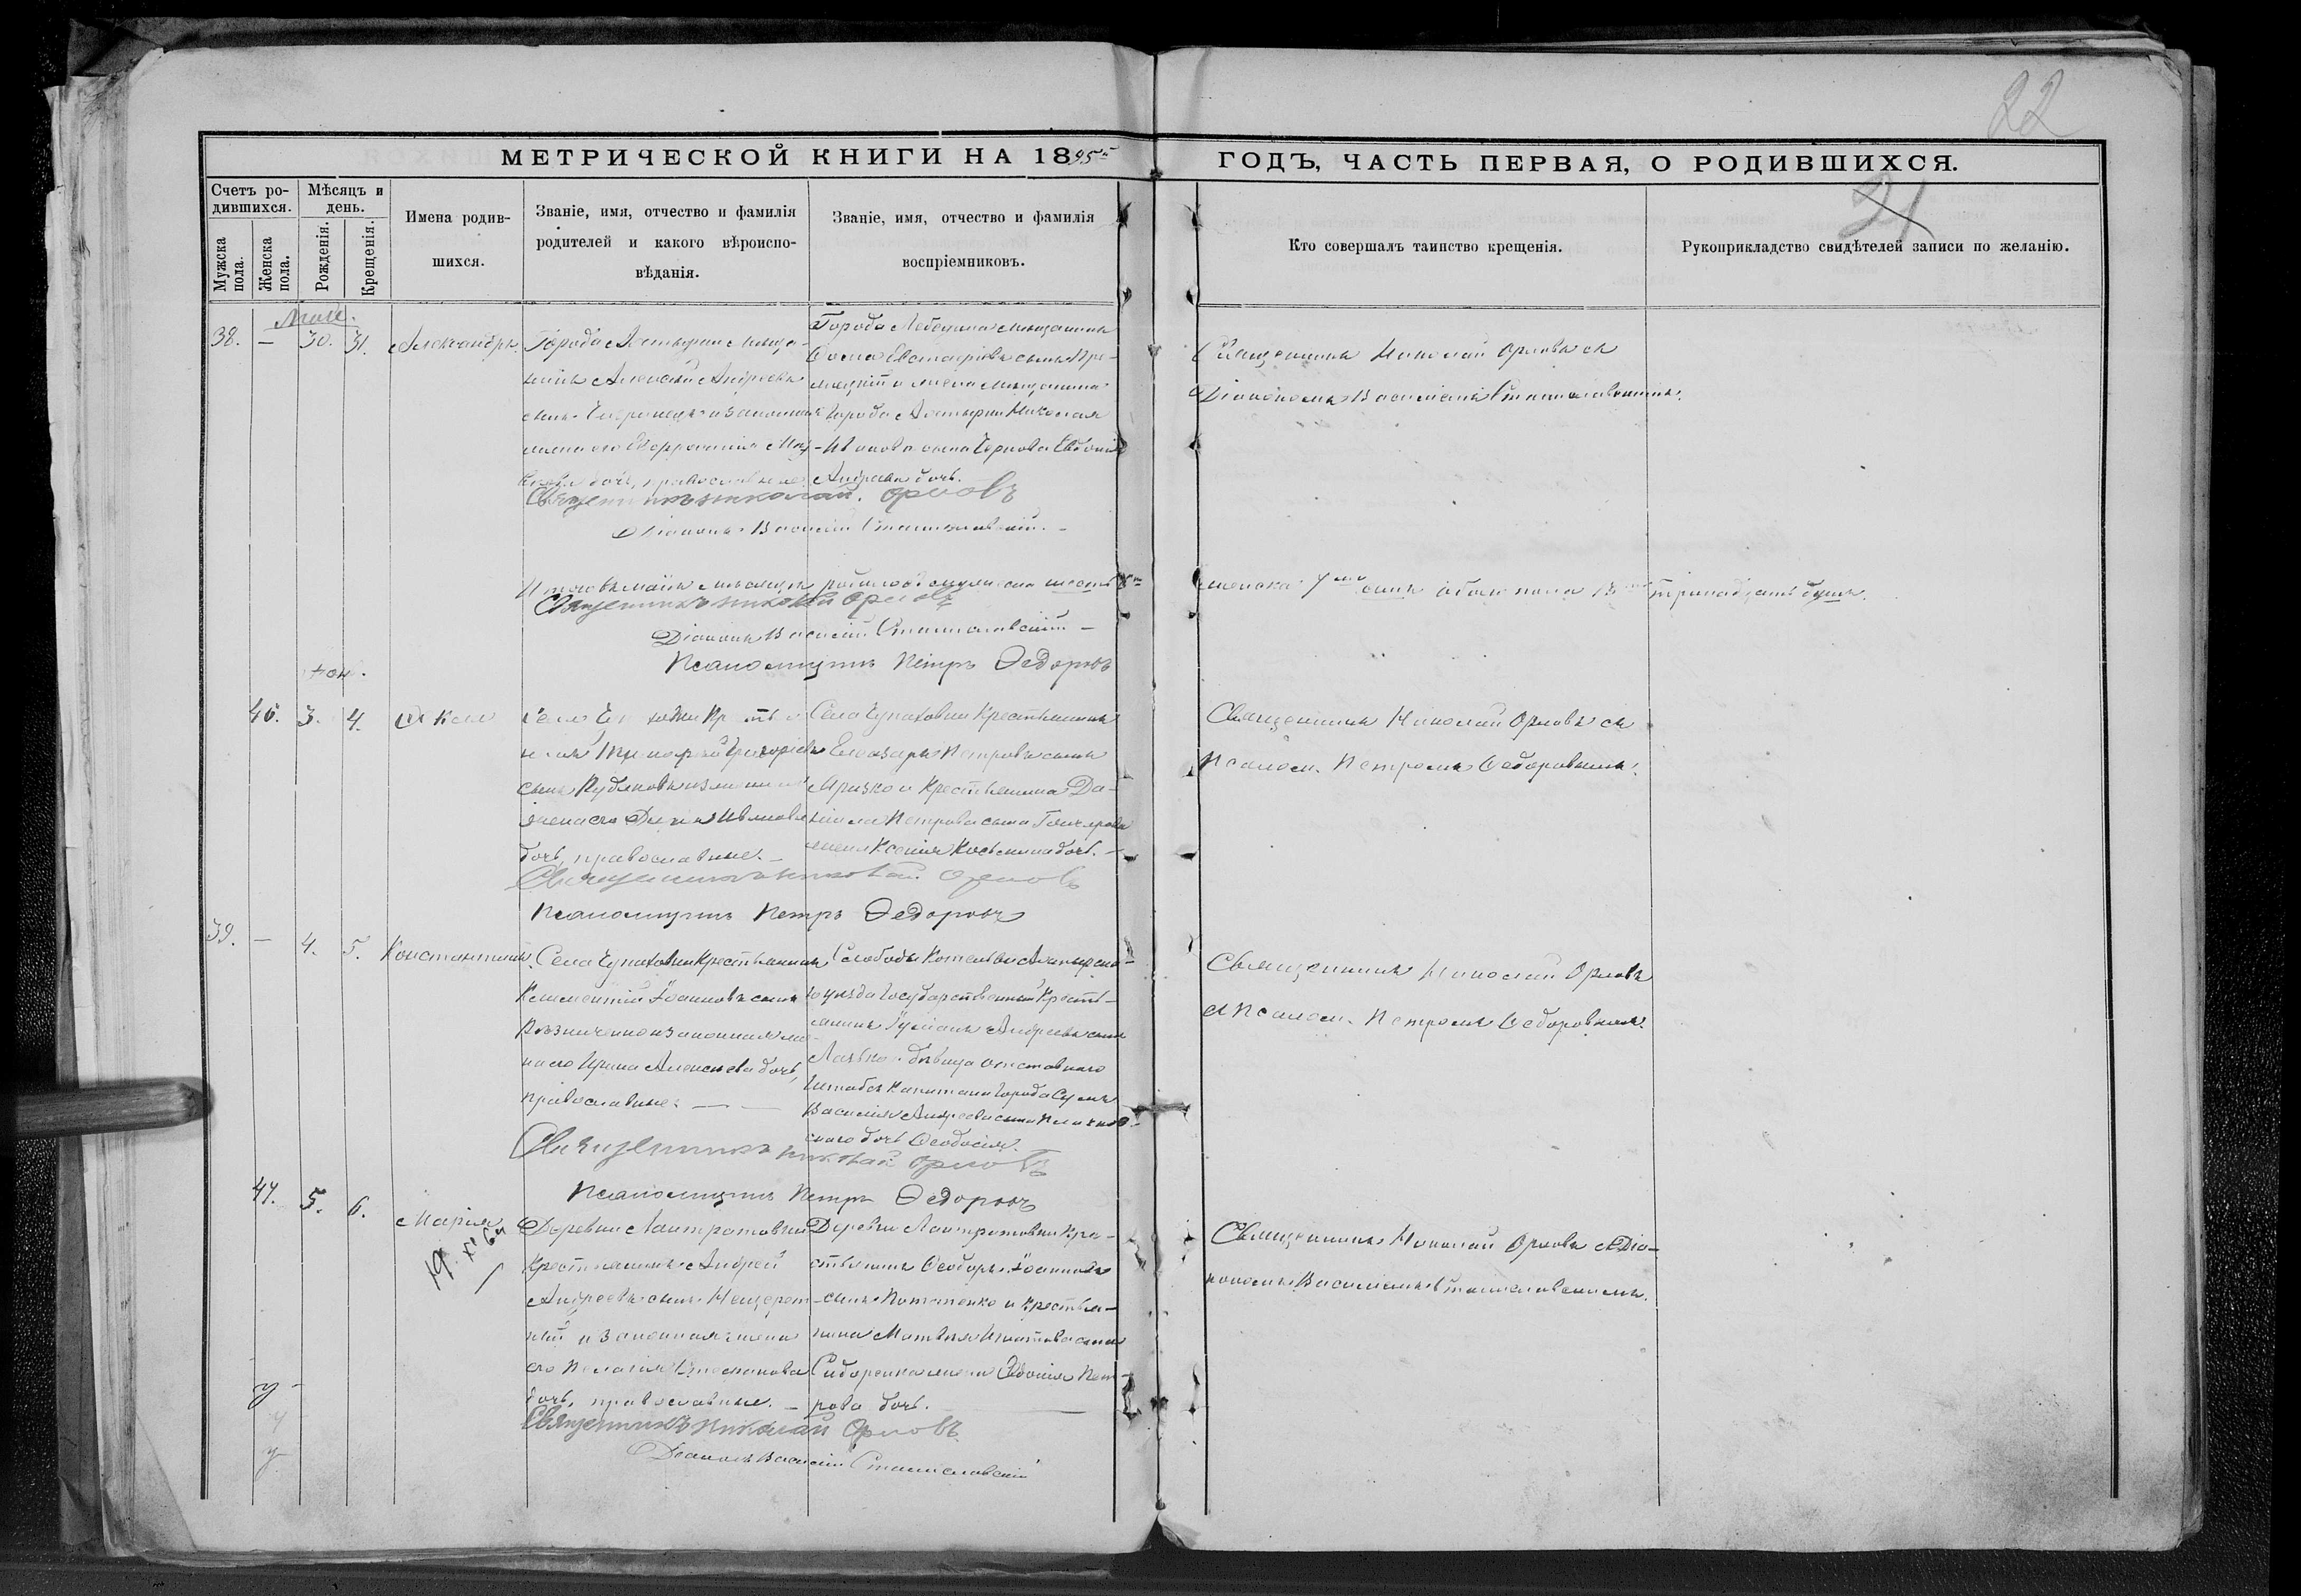 22
МЕТРИЧЕСКОЙ КНИГИ НА 1895й
ГОДЪ, ЧАСТЬ ПЕРВАЯ, О РОДИВШИХСЯ.
21
Счетъ ро-
дившихся.
Мѣсяцъ и
день.
Мужска
пола.
Женска
пола.
Рожденія.
Крещенія.
Имена родив-
шихся.
Званіе, имя, отчество и фамилія
родителей и какого вѣроиспо-
вѣданія.
Званіе, имя, отчество и фамилія
воспріемниковъ.
Кто совершалъ таинство крещенія.
Рукоприкладство свидѣтелей записи по желанію.
Маія.
38. — 30. 31. Александръ.
Города Ахтырки мѣща-
нинъ Алексѣй Андреевъ
сынъ и законная
жена его
дочь, православные.
Города Лебедина мѣщанинъ
Евстафіевъ сынъ
и жена мѣщанина
города Ахтырки Николая
Иванова сына Чернова Евдокія
Андреева дочь.
Священникъ Николай Орловъ съ
Діакономъ Василіемъ Станиславскимъ.
Священникъ Николай Орловъ
Діаконъ Василій Станиславскій.
Итого въ маіѣ мѣсяцѣ родилось мужеска шесть
женска 7 семь обоего пола 13 тринадцать душъ.
Священникъ Николай Орловъ
Діаконъ Василій Станиславскій —
Псаломщикъ Петръ Ѳедоровъ
46. 3. 4.
Григоріевъ
сынъ
жена его Иванова
дочь, православные. —
Села Чупаховки Крестьянинъ
Елеазаръ Петровъ сынъ
и Крестьянина Да-
ніила Петрова сына Гончарова
жена Ксенія Косьмина дочь. —
Священникъ Николай Орловъ съ
Псалом. Петромъ Ѳедоровымъ.
Священникъ Николай Орловъ
Псаломщикъ Петръ Ѳедоровъ
39. — 4. 5. Константинъ.
Села Чупаховки Крестьянинъ
Климентій Іоанновъ сынъ
и законная же-
на его Ирина Алексѣева дочь,
православные. —
Слободы Котельвы Ахтырска-
го уѣзда Государственный Кресть-
янинъ Андреевъ сынъ
и дѣвица отставнаго
Штабсъ Капитана города Сумъ
Василія Андреева сына
дочь Ѳеодосія.
Священникъ Николай Орловъ
съ Псалом. Петромъ Ѳедоровымъ.
Священникъ Николай Орловъ
Псаломщикъ Петръ Ѳедоровъ
47. 5. 6. Марія
Деревни Лантратовки
Крестьянинъ Андрей
Андреевъ сынъ Нещерет-
ный и законная жена
его Пелагія Стефанова
дочь, православные. —
Деревни Лантратовки Кре-
стьянинъ Ѳеодоръ Іоанновъ
сынъ Потапенко и Крестья-
нина Матвѣя Игнатова сына
Сидоренка жена Евдокія Пет-
рова дочь.
Священникъ Николай Орловъ съ Діа-
кономъ Василіемъ Станиславскимъ.
Священникъ Николай Орловъ
Діаконъ Василій Станиславскій